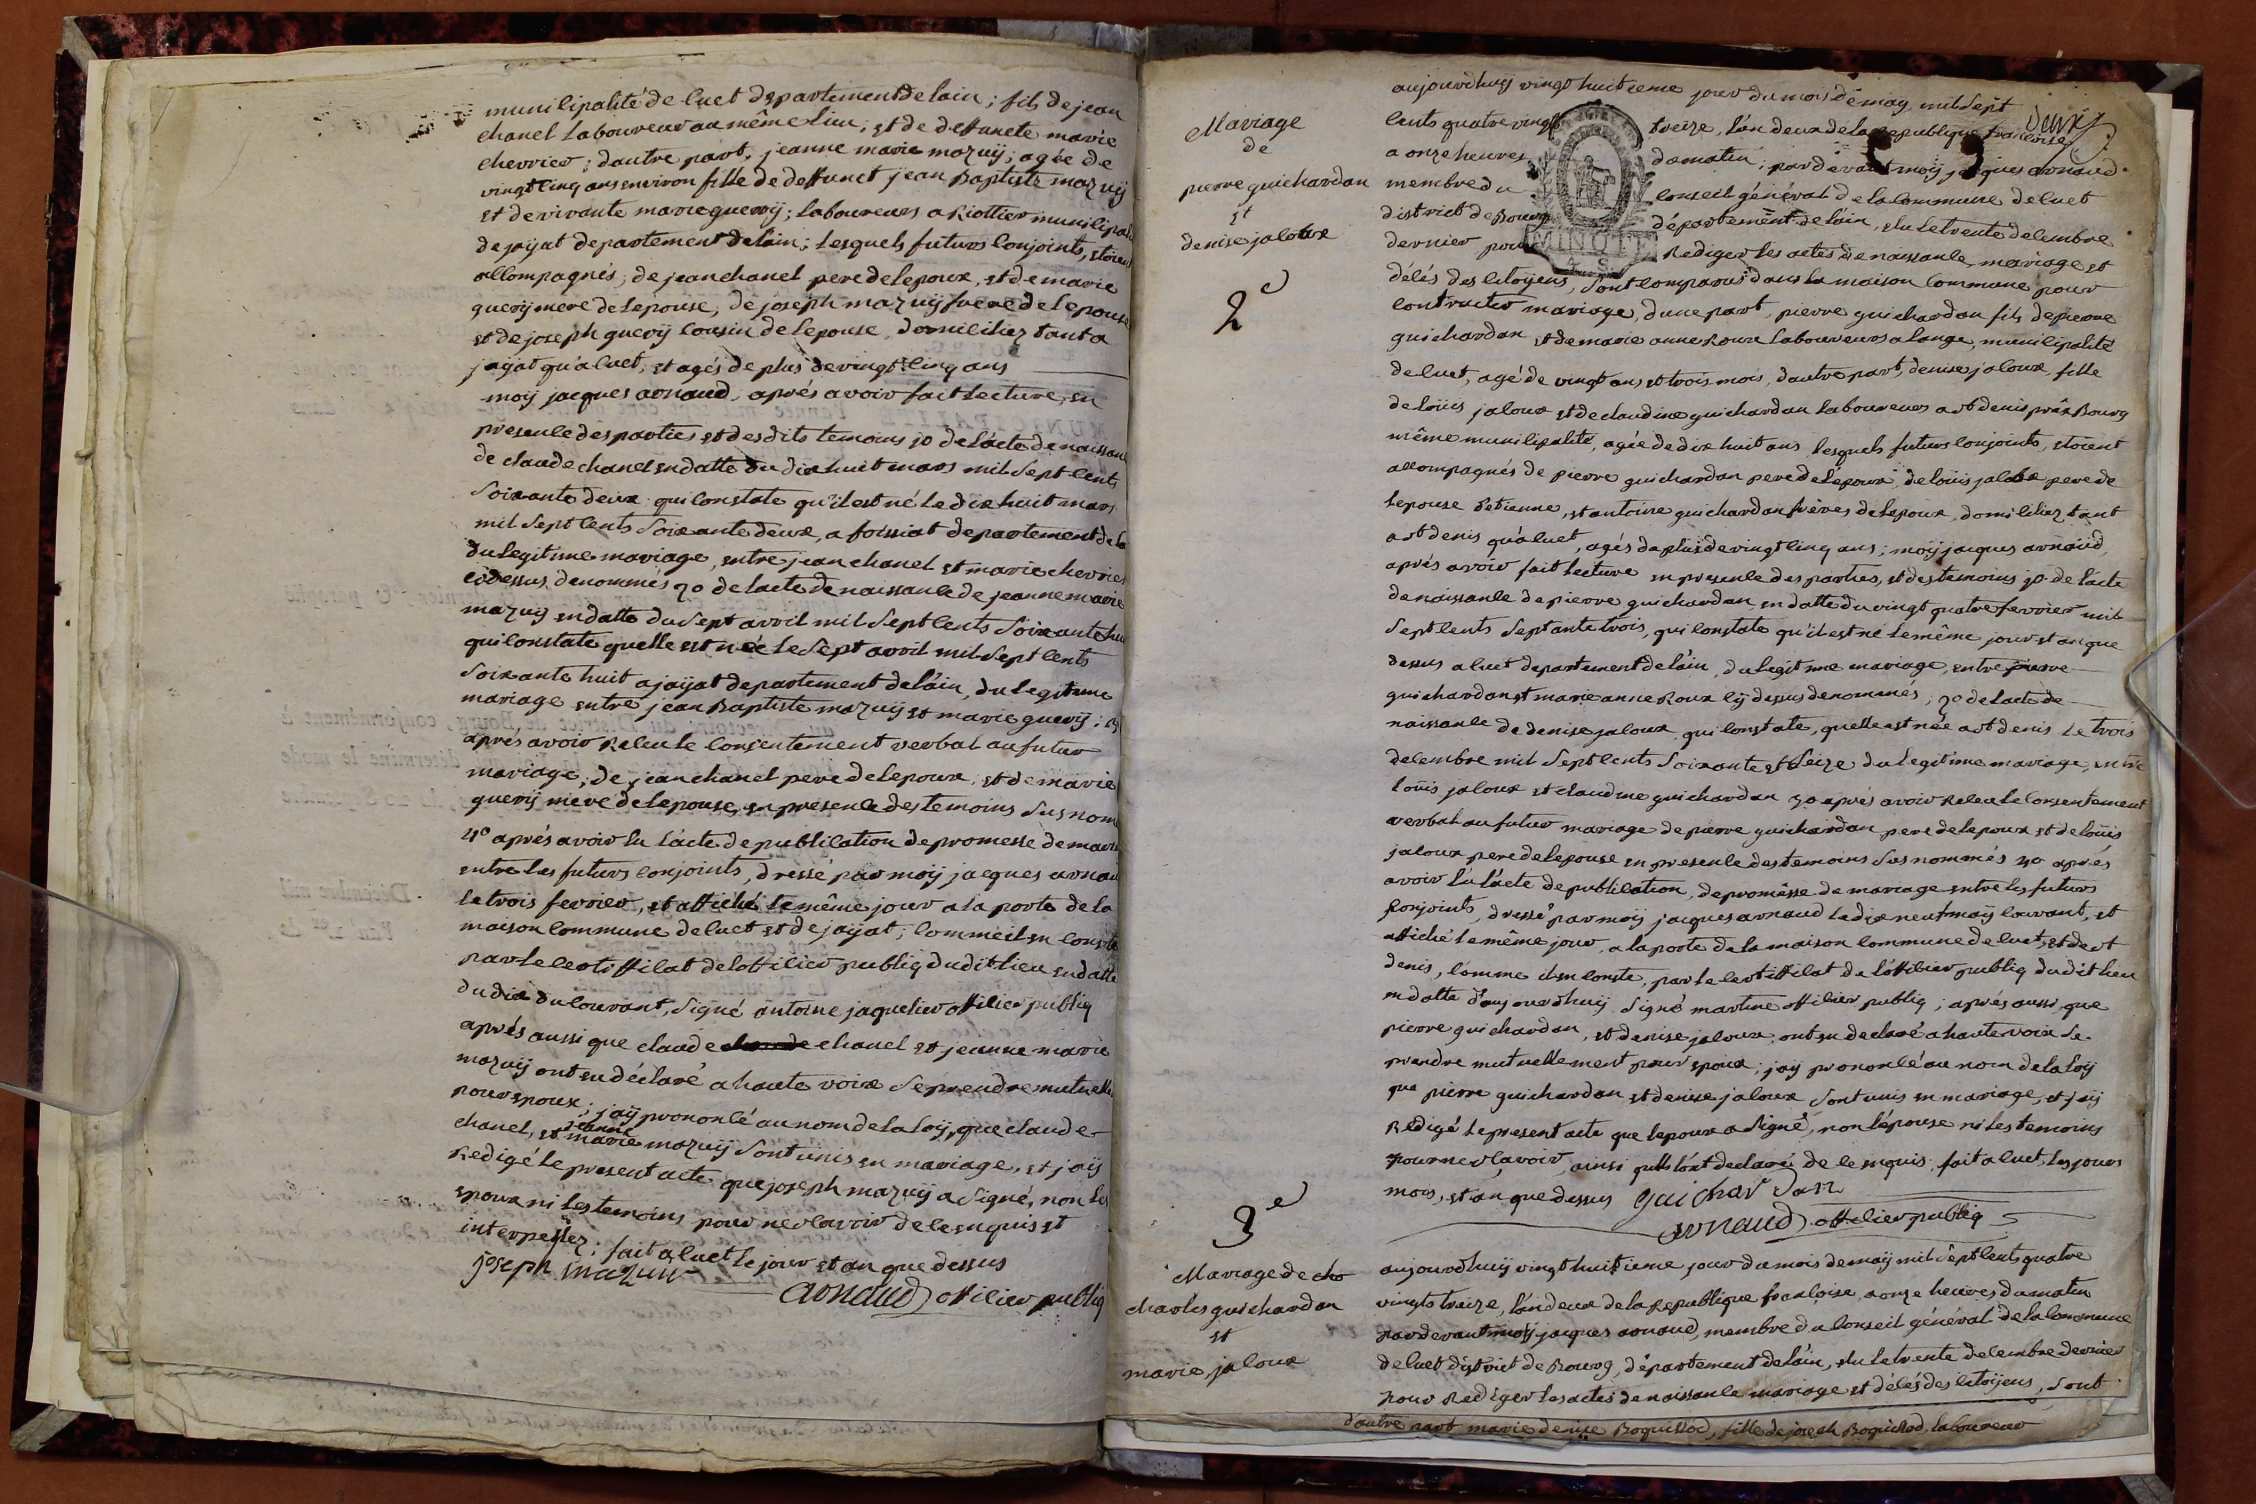 municipalité de Cuet departement de lain ; fils de jean
chanel Laboureur au même Lieu ; et de deffuncte marie
chevrier ; dautre part, jeanne marie mazuij ; agée de
vingt cinq ans environ fille de deffunct jean Baptiste mazuij
et de vivante marie guerij ; Laboureurs a
de jaÿat departement de lain ; Lesquels futurs Conjoints, etoient
accompagnés ; de jean chanel pere de lepoux, et de marie
guerij mere de lepouse, de joseph mazuij frere de lepouse
et de joseph guerij Cousin de lepouse, domiciliez tant a
jaÿat qu'a Cuet, et agés de plus de vingt cinq ans
moij jacques arnaud, aprés avoir fait Lecture, en
presence des parties et des dits temoins 1o de lacte de naissance
de claude chanel en datte du dix huit mars mil Sept Cents
Soixante deux qui Constate qu'il est né Le dix huit mars
mil Sept Cents Soixante deux, a foissiat departement de la
du legitime mariage, entre jean chanel et marie chevrier
cÿ dessus denommés 2o de lacte de naissance de jeanne marie
mazuij en datte du Sept avril mil Sept Cents Soixante huit
qui Constate quelle est née Le Sept avril mil Sept Cents
Soixante huit a jaÿat departement de l'ain, du Legitime
mariage entre jean Baptiste mazuij et marie guerij ; 3o
aprés avoir Receu Le Consentement verbal au futur
mariage, de jean chanel pere de lepoux, et de marie
guerij mere de lepouse, en presence des temoins Susnommés
4o aprés avoir Lu l'acte de publication de promesse de mariage
entre Les futurs Conjoints, dressé par moij jacques arnaud
Le trois fevrier, et affiché Le même jour a la porte de la
maison Commune de Cuet et de jaÿat ; Comme il en Conste
par Le Certifficat de lofficier publiq dudit Lieu en datte
du dix du Courant, Signé antoine jaquelier officier publiq
aprés aussi que claude chanel et jeanne marie
mazuij ont eu déclaré a haute voix Se prendre mutuellement
pour epoux ; jaÿ prononcé au nom de la Loij, que claude
chanel, et jeanne marie mazuij Sont unis en mariage, et jaÿ
Redigé Le present acte que joseph mazuij a Signé, non les
epoux ni Les temoins pour ne Scavoir de ce enquis et
interpellez ; fait a Cuet Le jour et an que dessus
joseph mazuir
arnaud officier publiq
deux
Mariage
de
pierre guichardan
et
denise jaloux
2e
aujourdhuij vingt huitieme jour du mois de maÿ mil Sept
Cents quatre vingt treize, l'an deux de la Republique francoise
a onze heures du matin ; pardevant moij jacques arnaud
membre du Conseil général de la Commune de Cuet
district de Bourg département de l'ain, elu Le trente decembre
dernier pour Rediger Les actes de naissance, mariage et
MINUTE
4. S.
décés des Citoÿens, Sont Comparus dans La maison Commune pour
Contracter mariage, dune part, pierre guichardan fils de pierre
guichardan et de marie anne Roux Laboureurs a Longe, municipalité
de Cuet, agé de vingt ans et trois mois, dautre part, denise jaloux, fille
de Loüis jaloux et de claudine guichardan Laboureurs a st denis prés Bourg
même municipalité, agée de dix huit ans Lesquels futurs Conjoints, etoient
accompagnés de pierre guichardan pere de lépoux, de Loüis jaloux pere de
lepouse d'etienne, et antoine guichardan fréres de lepoux, domiciliez tant
a st denis qu'a Cuet, agés de plus de vingt cinq ans ; moij jacques arnaud
aprés avoir fait Lecture en presence des parties, et des temoins 1o de lácte
de naissance de pierre guichardan en datte du vingt quatre fevrier mil
Sept Cents Septante trois, qui Constate qu'il est né Le même jour et an que
dessus a Cuet departement de l'ain, du Legitime mariage, entre pierre
guichardan et marie anne Roux Cÿ dessus denommés ; 2o de lacte de
naissance de denise jaloux, qui Constate, quelle est née a st denis Le trois
decembre mil Sept Cents Soixante et Seize du Legitime mariage, entre
Loüis jaloux et claudine guichardan 3o aprés avoir Receu Le Consentement
verbal au futur mariage de pierre guichardan pere de lepoux et de Loüis
jaloux pere de lepouse en presence des temoins Sus nommés 4o aprés
avoir Lu l'acte de publication, de promesse de mariage entre Les futurs
Conjoints, dressé par moij jacques arnaud Le dix neuf maÿ Courant, et
affiché Le même jour, a la porte de la maison Commune de Cuet, et de st
denis, Comme il en Conste, par Le Certifficat de l'officier publiq dudit Lieu
en datte d'aujourdhuij Signé martine officier publiq ; aprés aussi que
pierre guichardan, et denise jaloux ont eu declaré a haute voix Se
prendre mutuellement pour epoux ; jaÿ prononcé au nom de la Loÿ
que pierre guichardan et denise jaloux Sont unis en mariage, et jaÿ
Redigé Le present acte que lepoux a Signé, non l'épouse ni Les temoins
pour ne Scavoir, ainsi quils l'ont declaré de ce enquis, fait a Cuet, Les jour
mois, et an que dessus guichardan
arnaud officier publiq
3e
Mariage de cha
charles guichardan
et
marie jaloux
aujourdhuij vingt huitieme jour du mois de maÿ mil Sept Cents quatre
vingts treize, l'an deux de la Republique francoise, a onze heures du matin
pardevant moÿ jacques arnaud, membre du Conseil général de la Commune
de Cuet district de Bourg, département de l'ain, elu Le trente decembre dernier
pour Rediger Les actes de naissance mariage et décés des Citoÿens, Sont
dautre part marie denise Boquillod, fille de joseph Boquillod Laboureur